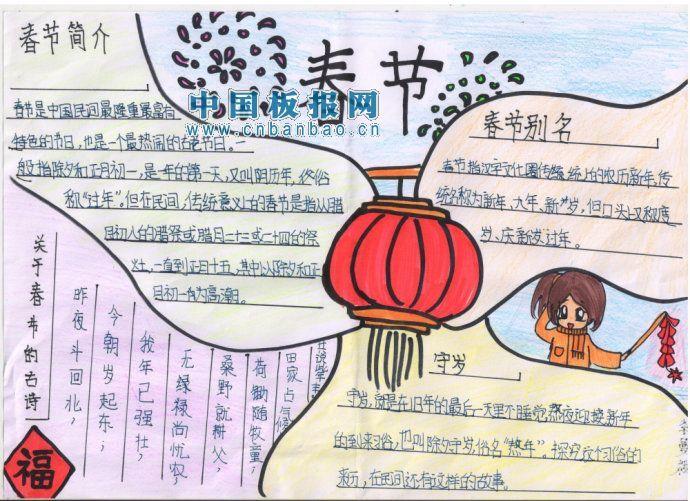 春节
中国板报网
www.cnbanbao.cn
春节简介
春节是中国民间最隆重最富有
特色的节日,也是一个最热闹的古老节日。一
般指除夕和正月初一,是一年的第一天,又叫阴历年,俗
称“过年”。但在民间,传统意义上的春节是指从腊
月初八的腊祭或腊月二十三或二十四的祭
灶,一直到正月十五,其中以除夕和正
月初一为高潮。
春节别名
春节指汉字文化圈传统上的农历新年,传
统名称为新年、大年、新岁,但口头上又称度
岁、庆新岁、过年。
守岁
守岁,就是在旧年的最后一天里不睡觉熬夜迎接新年
的到来习俗,也叫除夕守岁,俗名“熬年”。探究这个习俗的
来历,在民间还有这样的故事。
关于春节的古诗
昨夜斗回北,
今朝岁起东;
我年已强壮,
无绿禄尚忧农,
桑野就耕父,
荷锄随牧童;
田家占气候
福